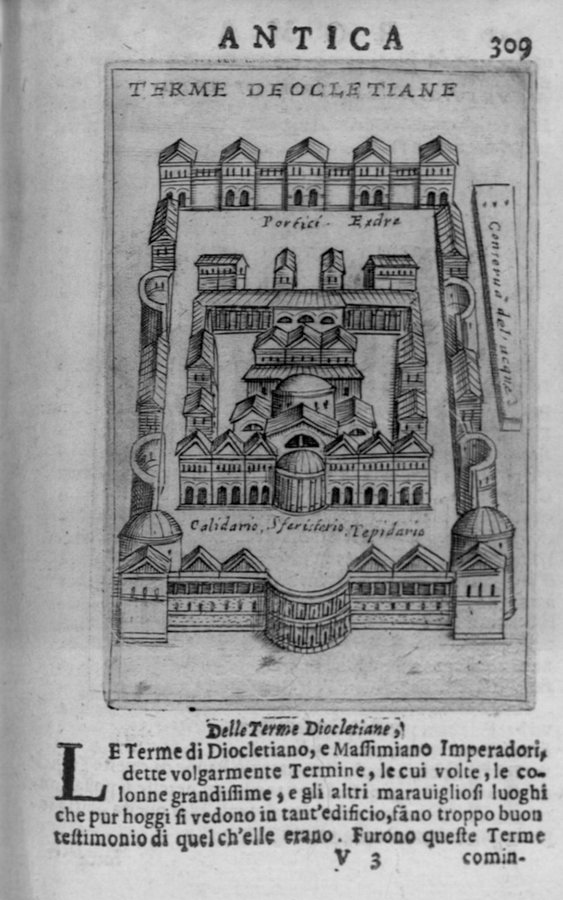 ANTICA 309
TERME DEOCLETIANE
Portici. Exdre
Conserua del acque
Calidario, Sferisterio, Tepidario
Delle Terme Diocletiane,
LE Terme di Diocletiano, e Maſſimiano Imperadori,
dette volgarmente Termine, le cui volte, le co-
lonne grandiſſime, e gli altri marauiglioſi luoghi
che pur hoggi ſi vedono in tant'edificio, fãno troppo buon
teſtimonio di quel ch'elle erano. Furono queſte Terme
V 3 comin-